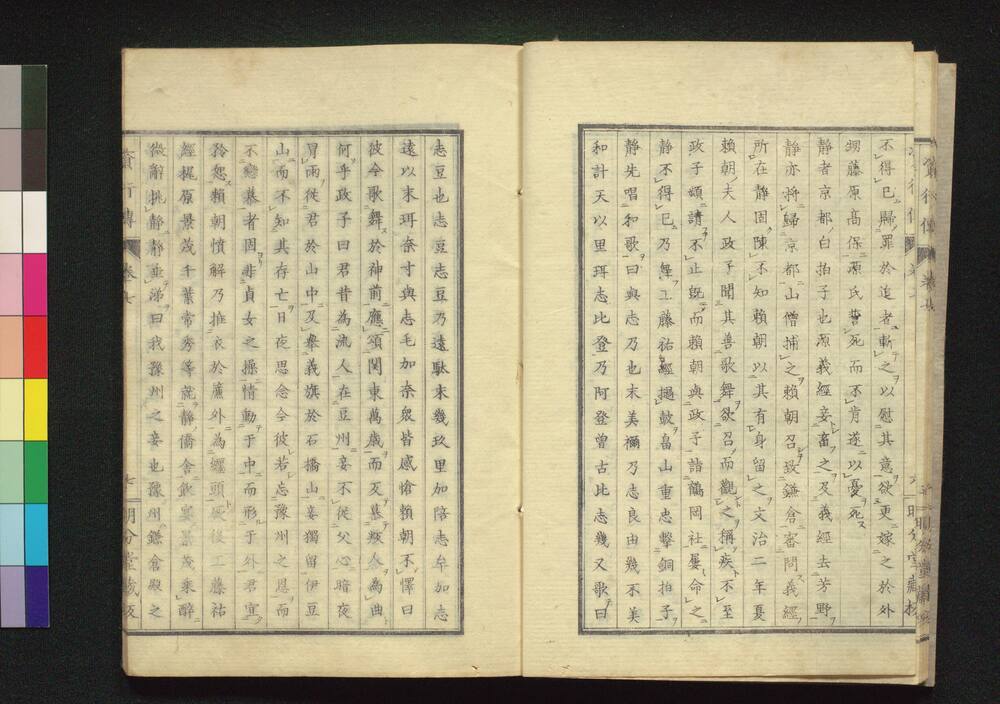 不得已歸罪於追者斬之以慰其意欲更嫁之於外
甥藤原高保源氏誓死而不肯遂以憂死
静者京都白拍子也源義經妾畜之及義經去芳野
静亦將歸京都山僧捕之賴朝召致鎌倉審問義經
所在静固陳不知賴朝以其有身留之文治二年夏
賴朝夫人政子聞其善歌舞欲召而觀之稱疾不至
政子頻請不止既而賴朝與政子詣鶴岡社屢命之
静不得已乃舞工藤祐經撾鼓畠山重忠擊銅拍子
静先唱和歌曰與志乃也末美禰乃志良由幾不美
和計天以里珥志比登乃阿登曾古比志幾又歌曰
志豆也志豆志豆乃遠駄末幾玖里加陪志牟加志
遠以末珥奈寸與志毛加奈衆皆感愴賴朝不懌曰
彼今歌舞於神前應頌関東萬歳而反慕叛人為曲
何乎政子曰君昔為流人在豆州妾不從父心暗夜
冒雨從君於山中及舉義旗於石橋山妾獨留伊豆
山而不知其存亡日夜思念今彼若忘豫州之恩而
不戀慕者固非貞女之操情動于中而形于外君宜
矜恕賴朝憤解乃推衣於簾外為纏頭後工藤祐
經梶原景茂千葉常秀等就静僑舎飲宴景茂乘醉
微辭挑静静垂涕曰我豫州之妾也豫州鎌倉殿之
行傳
卷七
七
明分堂蔵板